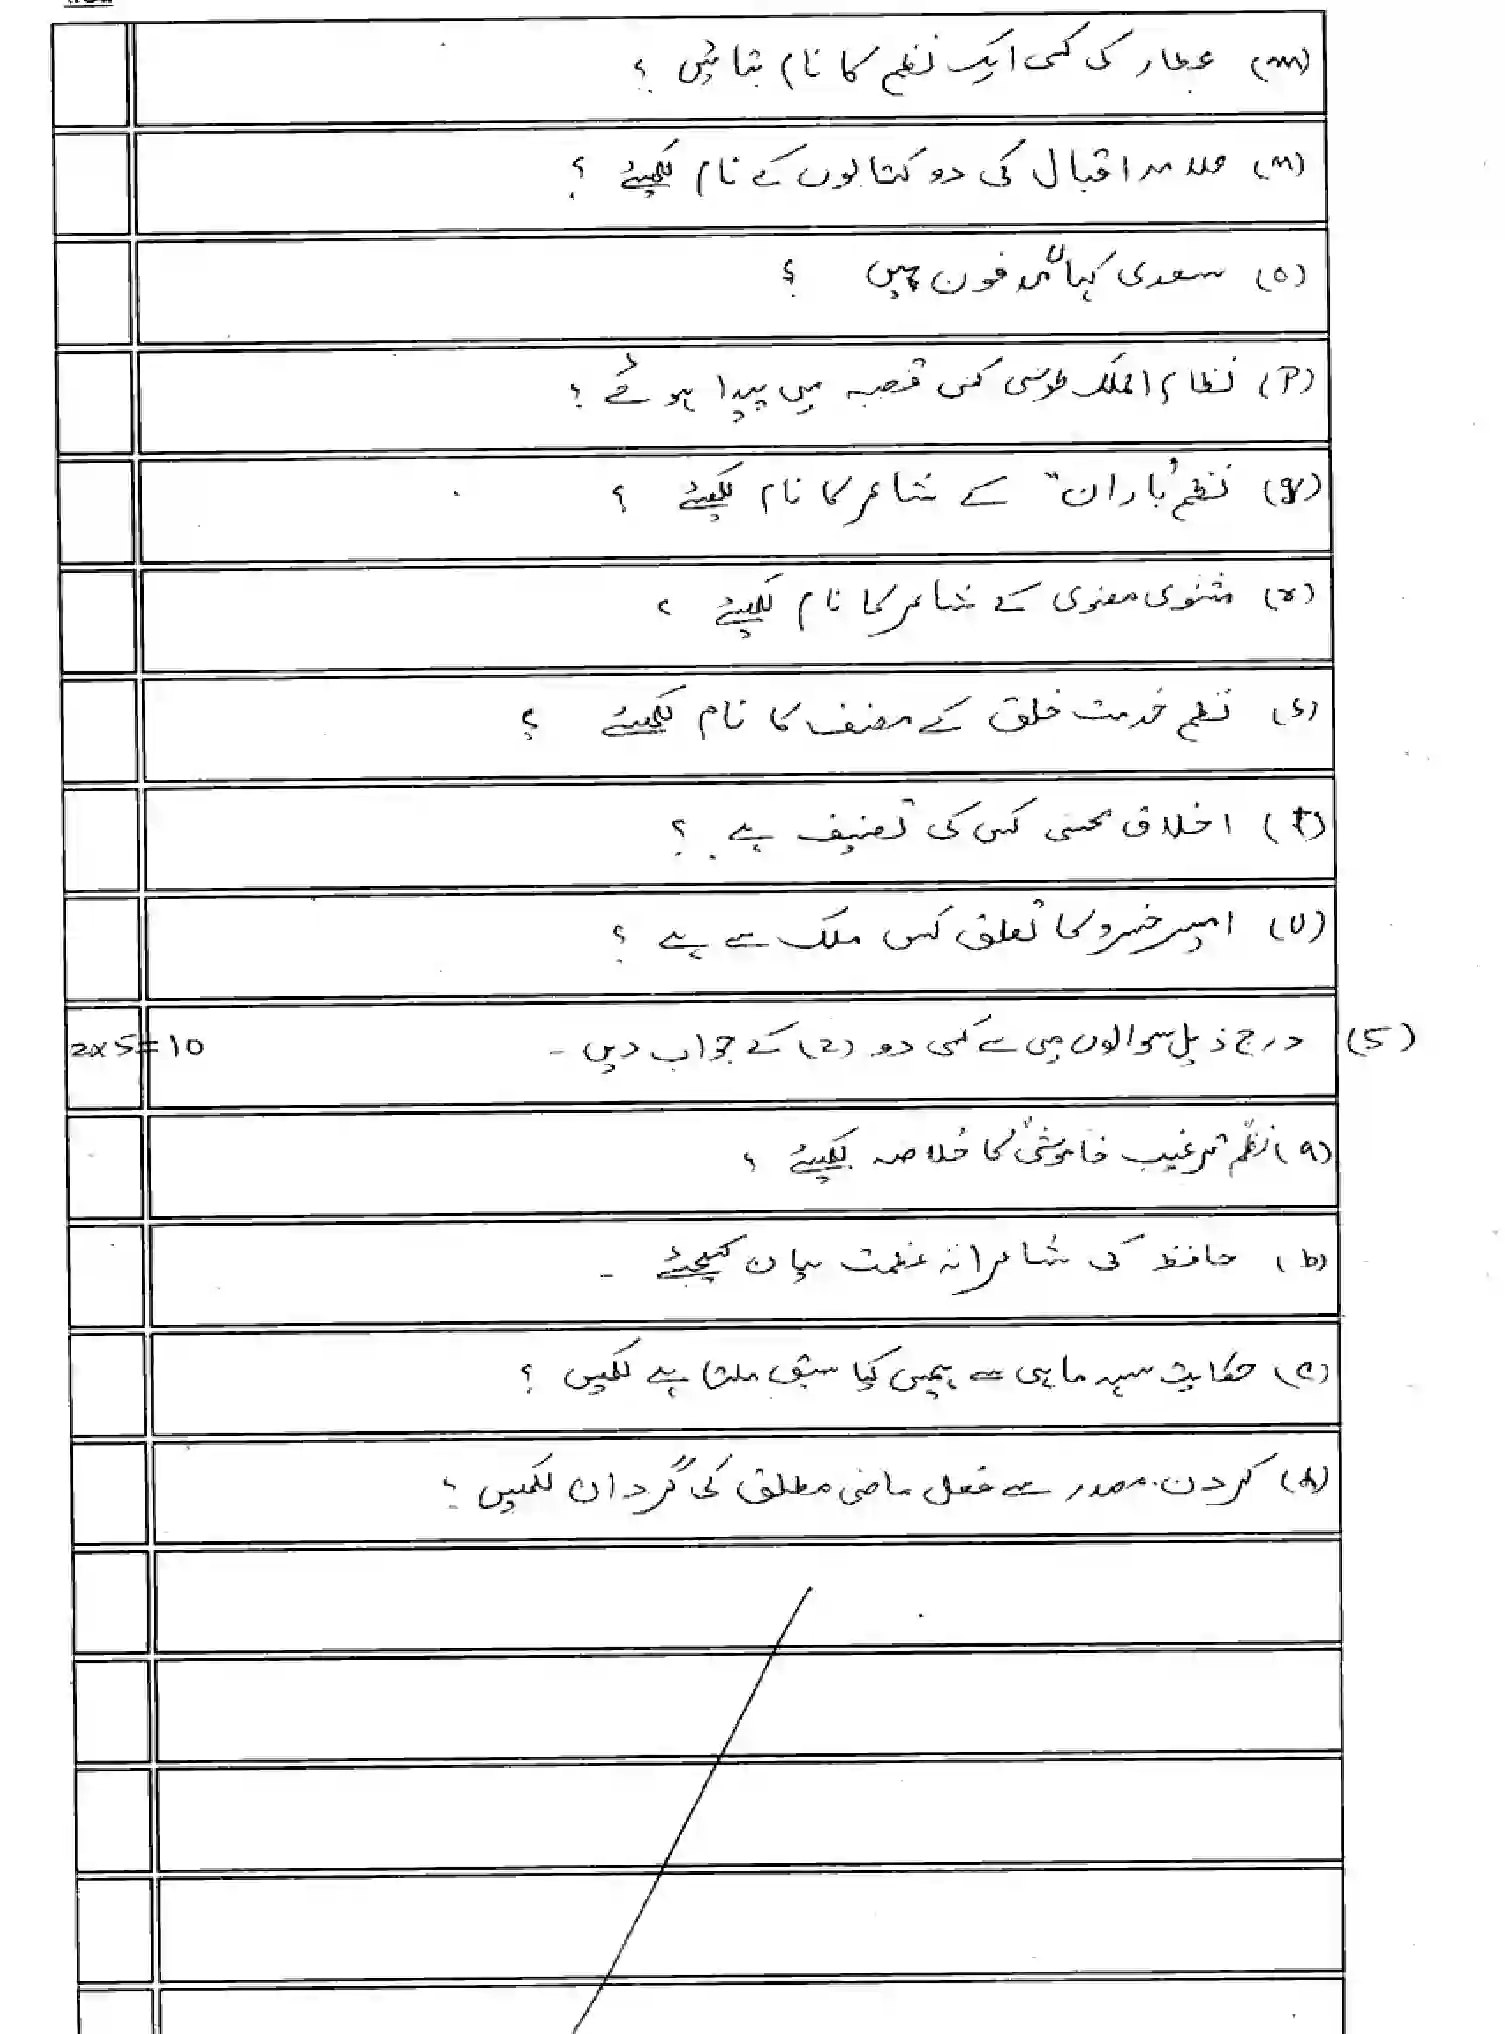 (m) عطار کی کسی ایک نظم کا نام بتائیں ؟
(n) علامہ اقبال کی دو کتابوں کے نام لکھیئے ؟
(o) سعدی کہاں مدفون ہیں ؟
(p) نظام الملک طوسی کس قصبہ میں پیدا ہوئے ؟
(q) نظم "باران" کے شاعر کا نام لکھیئے ؟
(r) مثنوی معنوی کے شاعر کا نام لکھیئے ؟
(s) نظم خدمت خلق کے مصنف کا نام لکھیئے ؟
(t) اخلاق محسنی کس کی تصنیف ہے ؟
(u) امیر خسرو کا تعلق کس ملک سے ہے ؟
(5) درج ذیل سوالوں میں سے کسی دو (2) کے جواب دیں ۔ 2x5=10
(a) نظم "ترغیب خاموشی" کا خلاصہ لکھیئے ؟
(b) حافظ کی شاعرانہ عظمت بیان کیجیئے ۔
(c) حکایت سہ ماہی سے ہمیں کیا سبق ملتا ہے لکھیں ؟
(d) کردن مصدر سے فعل ماضی مطلق کی گردان لکھیں ؟